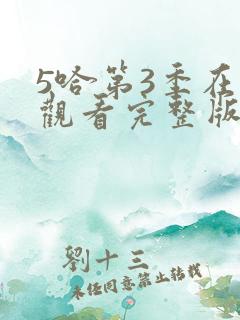 5哈第3季在
觀看完整版
劉十三
未经同意禁止转载